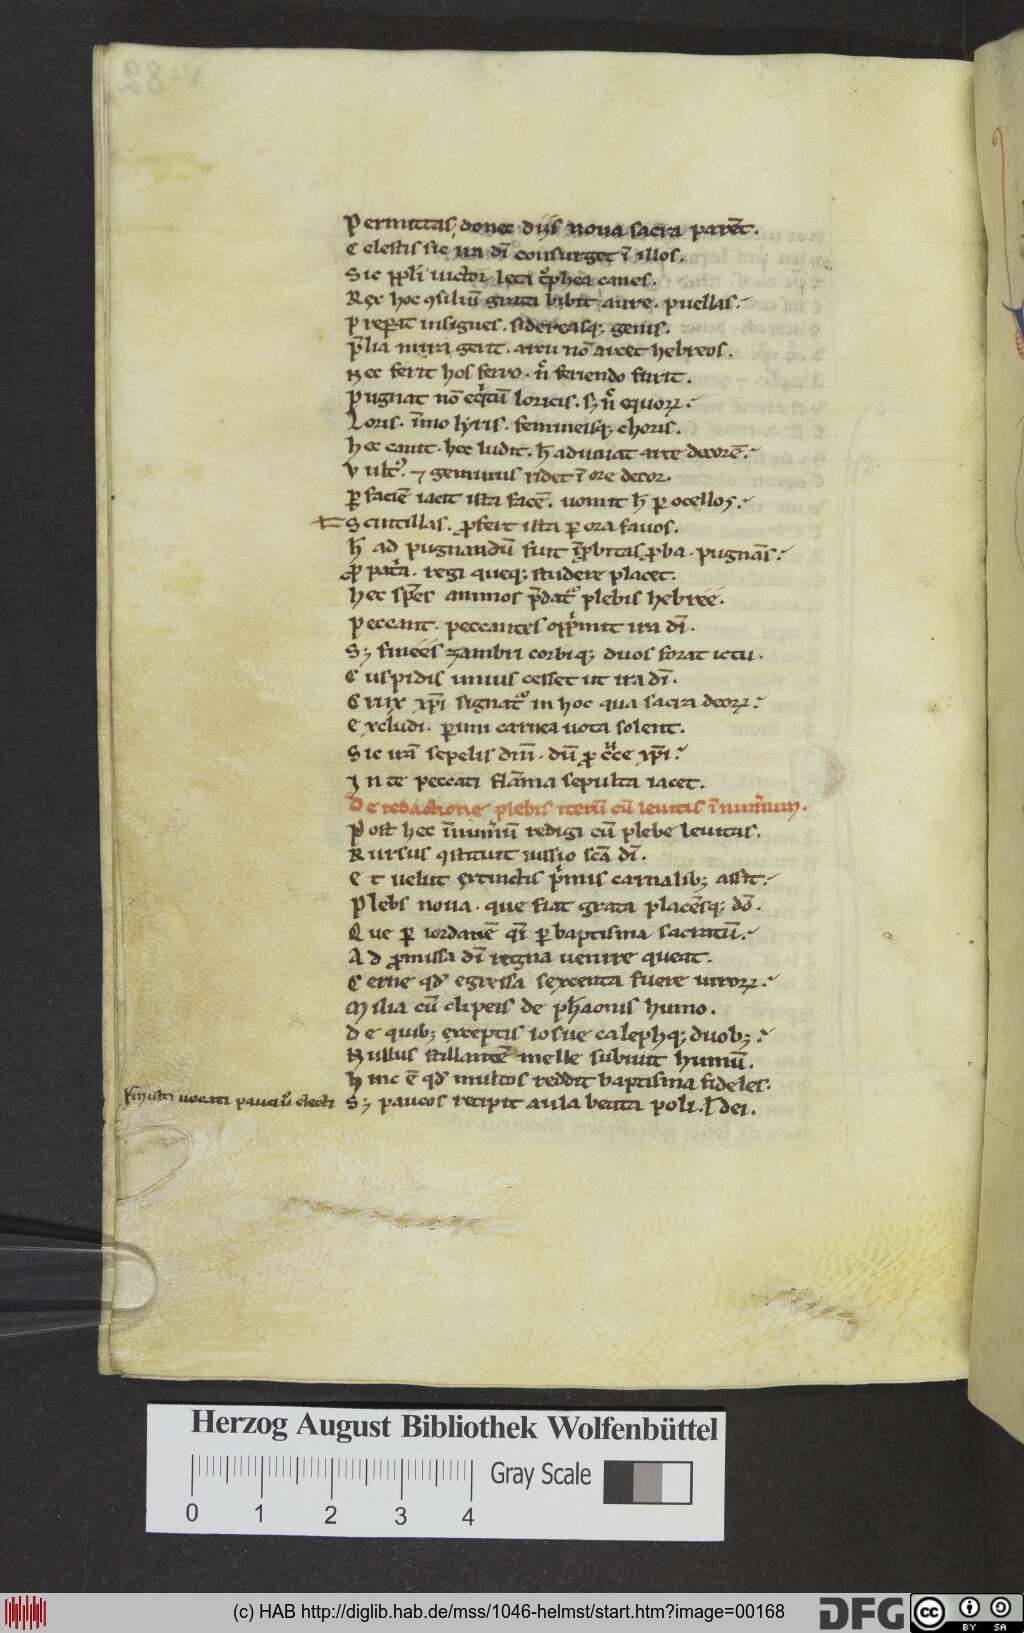 Permittas donec diis noua sacra parēt.
Celestis sic ira dī consurget ī illos.
Sic uictor leta canes.
Rex hoc ꝯsiliū grata bibit aure. puellas
Prepat insignes. sidereasq; genis.
P̄lia mira gerit. arcu nō arcet hebreos.
Nec ferit hos ferro. n̄ feriendo furit.
Pugnat nō loricis. sꝫ n̄ equoꝝ
Loris. īmo lyris. femineisq; choris.
Hec canit. hec ludit. h̄ adiuuat arte decorē.
Vult⁹. ⁊ geminus ridet ī ore decor.
Ꝑ faciē iacit ista facē. uomit h̄ ꝑ ocellos
Scintillas. ꝓfert ista ꝑ ora fauos.
H̄ ad pugnandū fuit ꝓba. pugnās
Ꝓ pat̄a. regi queq; studere placet.
Hec animos plebis hebree.
Peccant. peccantes ira dī.
Sꝫ finees zambri corbiq; duos forat ictu.
Cuspidis unius cesset ut ira dī.
Crux xp̄i signat᷑ in hoc qua sacra deoꝝ
Excludi. ꝑimi carnea uota solent.
Sic irā sepelis dm̄. dū ꝓ c̄ce xp̄i
In te peccati flāma sepulta iacet.
De redactione plebis iterū cū leuitis ī numerum.
Post hec ī numerū redigi cū plebe leuitas.
Rursus ꝯstituit iussio scā dī.
Et uelut extinctis p̄mis carnalibꝫ assit
Plebs noua. que fiat grata placēsq; dō.
Que ꝑ iordanē ꝑ baptisma sacratū
Ad ꝓmissa dī regna uenire queat.
Cerne qd̄ egressa sexcenta fuere uiroꝝ
Milia cū clipeis de ph̄aonis humo.
De quibꝫ exceptis iosue calephq; duobꝫ
Nullus stillantē melle subiuit humū.
Hinc ē qd̄ multos reddit baptisma fideles.
multi uocati pauci ū electi
Sꝫ paucos recipit aula beata poli. ł dei.
Herzog August Bibliothek Wolfenbüttel
Gray Scale
0 1 2 3 4
(c) HAB http://diglib.hab.de/mss/1046-helmst/start.htm?image=00168
DFG
cc BY SA